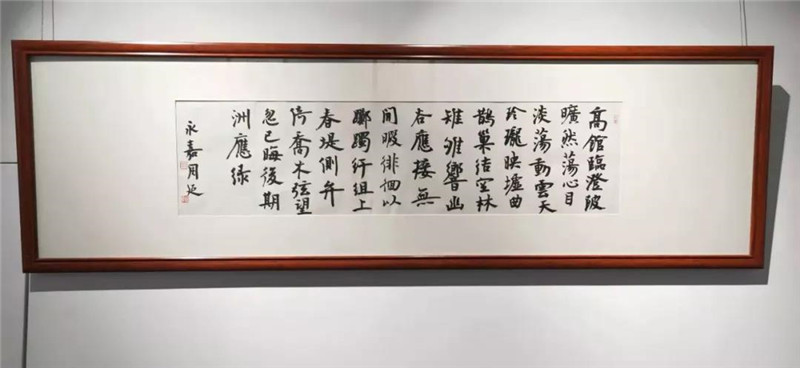 高館臨澄陂
曠然蕩心目
淡蕩動雲天
玲瓏映墟曲
鵲巢結空林
雉雊響幽
谷應接無
閒暇徘徊以
躑躅紆組上
春堤側弁
倚喬木弦望
忽已晦後期
洲應綠
永嘉周延